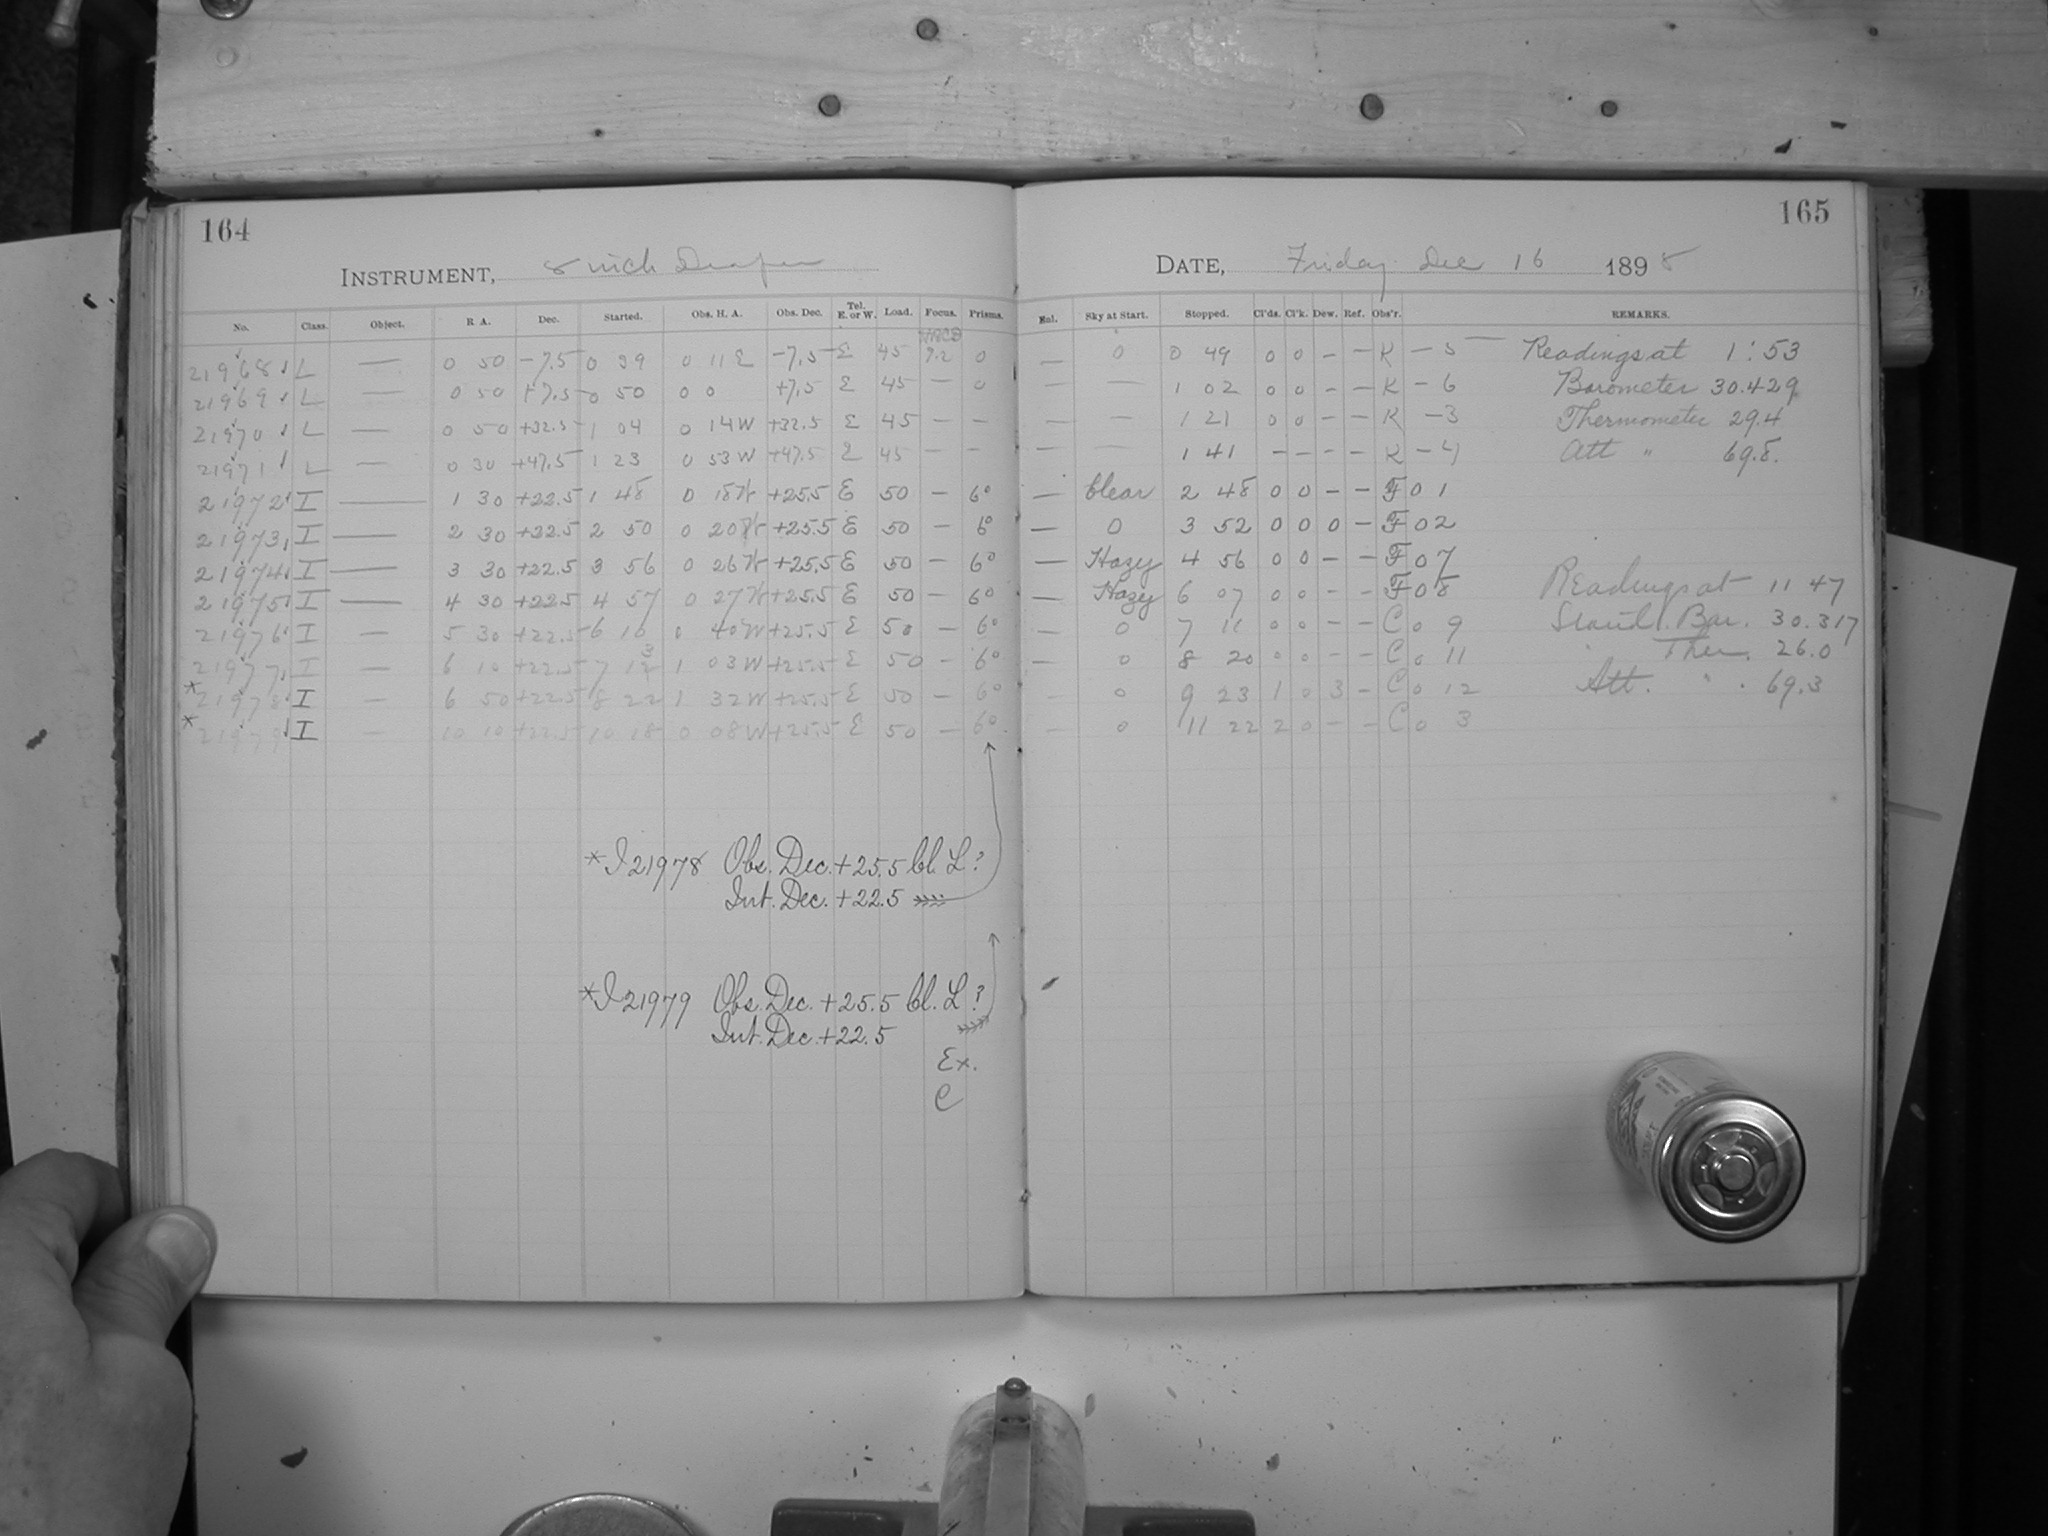 164
INSTRUMENT, 8 inch Draper
No. Class. Object. R. A. Dec. Started. Obs. H. A. Obs. Dec. Tel. E. or W. Load. Focus. Prisms.
21968 L — 0 50 -7.5 0 39 0 11 E -7.5 E 45 7.2 0
21969 L — 0 50 +7.5 0 50 0 0 +7.5 E 45 — 0
21970 L — 0 50 +32.5 1 04 0 14 W +32.5 E 45 — —
21971 L — 0 30 +47.5 1 23 0 53 W +47.5 E 45 — —
21972 I — 1 30 +22.5 1 48 0 18 W +25.5 E 50 — 6°
21973 I — 2 30 +22.5 2 50 0 20 W +25.5 E 50 — 6°
21974 I — 3 30 +22.5 3 56 0 26 W +25.5 E 50 — 6°
21975 I — 4 30 +22.5 4 57 0 27 W +25.5 E 50 — 6°
21976 I — 5 30 +22.5 6 10 0 40 W +25.5 E 50 — 6°
21977 I — 6 10 +22.5 7 13 1 03 W +25.5 E 50 — 6°
* 21978 I — 6 50 +22.5 8 22 1 32 W +25.5 E 50 — 6°
* 21979 I — 10 10 +22.5 10 18 0 08 W +25.5 E 50 — 6°
*I 21978 Obs. Dec. +25.5 Cl. L?
Int. Dec. +22.5
*I 21979 Obs. Dec. +25.5 Cl. L?
Int. Dec. +22.5
Ex.
C
165
DATE, Friday Dec 16 1898
Enl. Sky at Start. Stopped. Cl'ds. Cl'k. Dew. Ref. Obs'r. REMARKS.
— 0 0 49 0 0 – – K – 5 Readings at 1:53
— — 1 02 0 0 – – K – 6 Barometer 30.429
— — 1 21 0 0 – – K – 3 Thermometer 29.4
— — 1 41 – – – – K – 4 Att " 69.8.
— Clear 2 48 0 0 – – F 0 1
— 0 3 52 0 0 0 – F 0 2
— Hazy 4 56 0 0 – – F 0 7
— Hazy 6 07 0 0 – – F 0 8 Readings at 11 47
— 0 7 11 0 0 – – C 0 9 Stand. Bar. 30.317
— 0 8 20 0 0 – – C 0 11 Ther. 26.0
— 0 9 23 1 0 3 – C 0 12 Att. " . 69.3
— 0 11 22 2 0 – – C 0 3